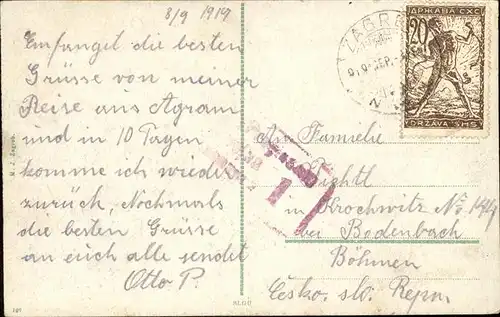 8/9 1919
Empfanget die besten
Grüsse von meiner
Reise aus Agram
und in 10 Tagen
komme ich wieder
zurück, Nochmals
die besten Grüsse
an euch alle sendet
Otto P.
ZAGRE
919-SEP.-
20
ДРЖАВА СХС
DRŽAVA SHS
An Familie
in Krochwitz No
bei Bodenbach
Böhmen
Česko. slv. Repn.